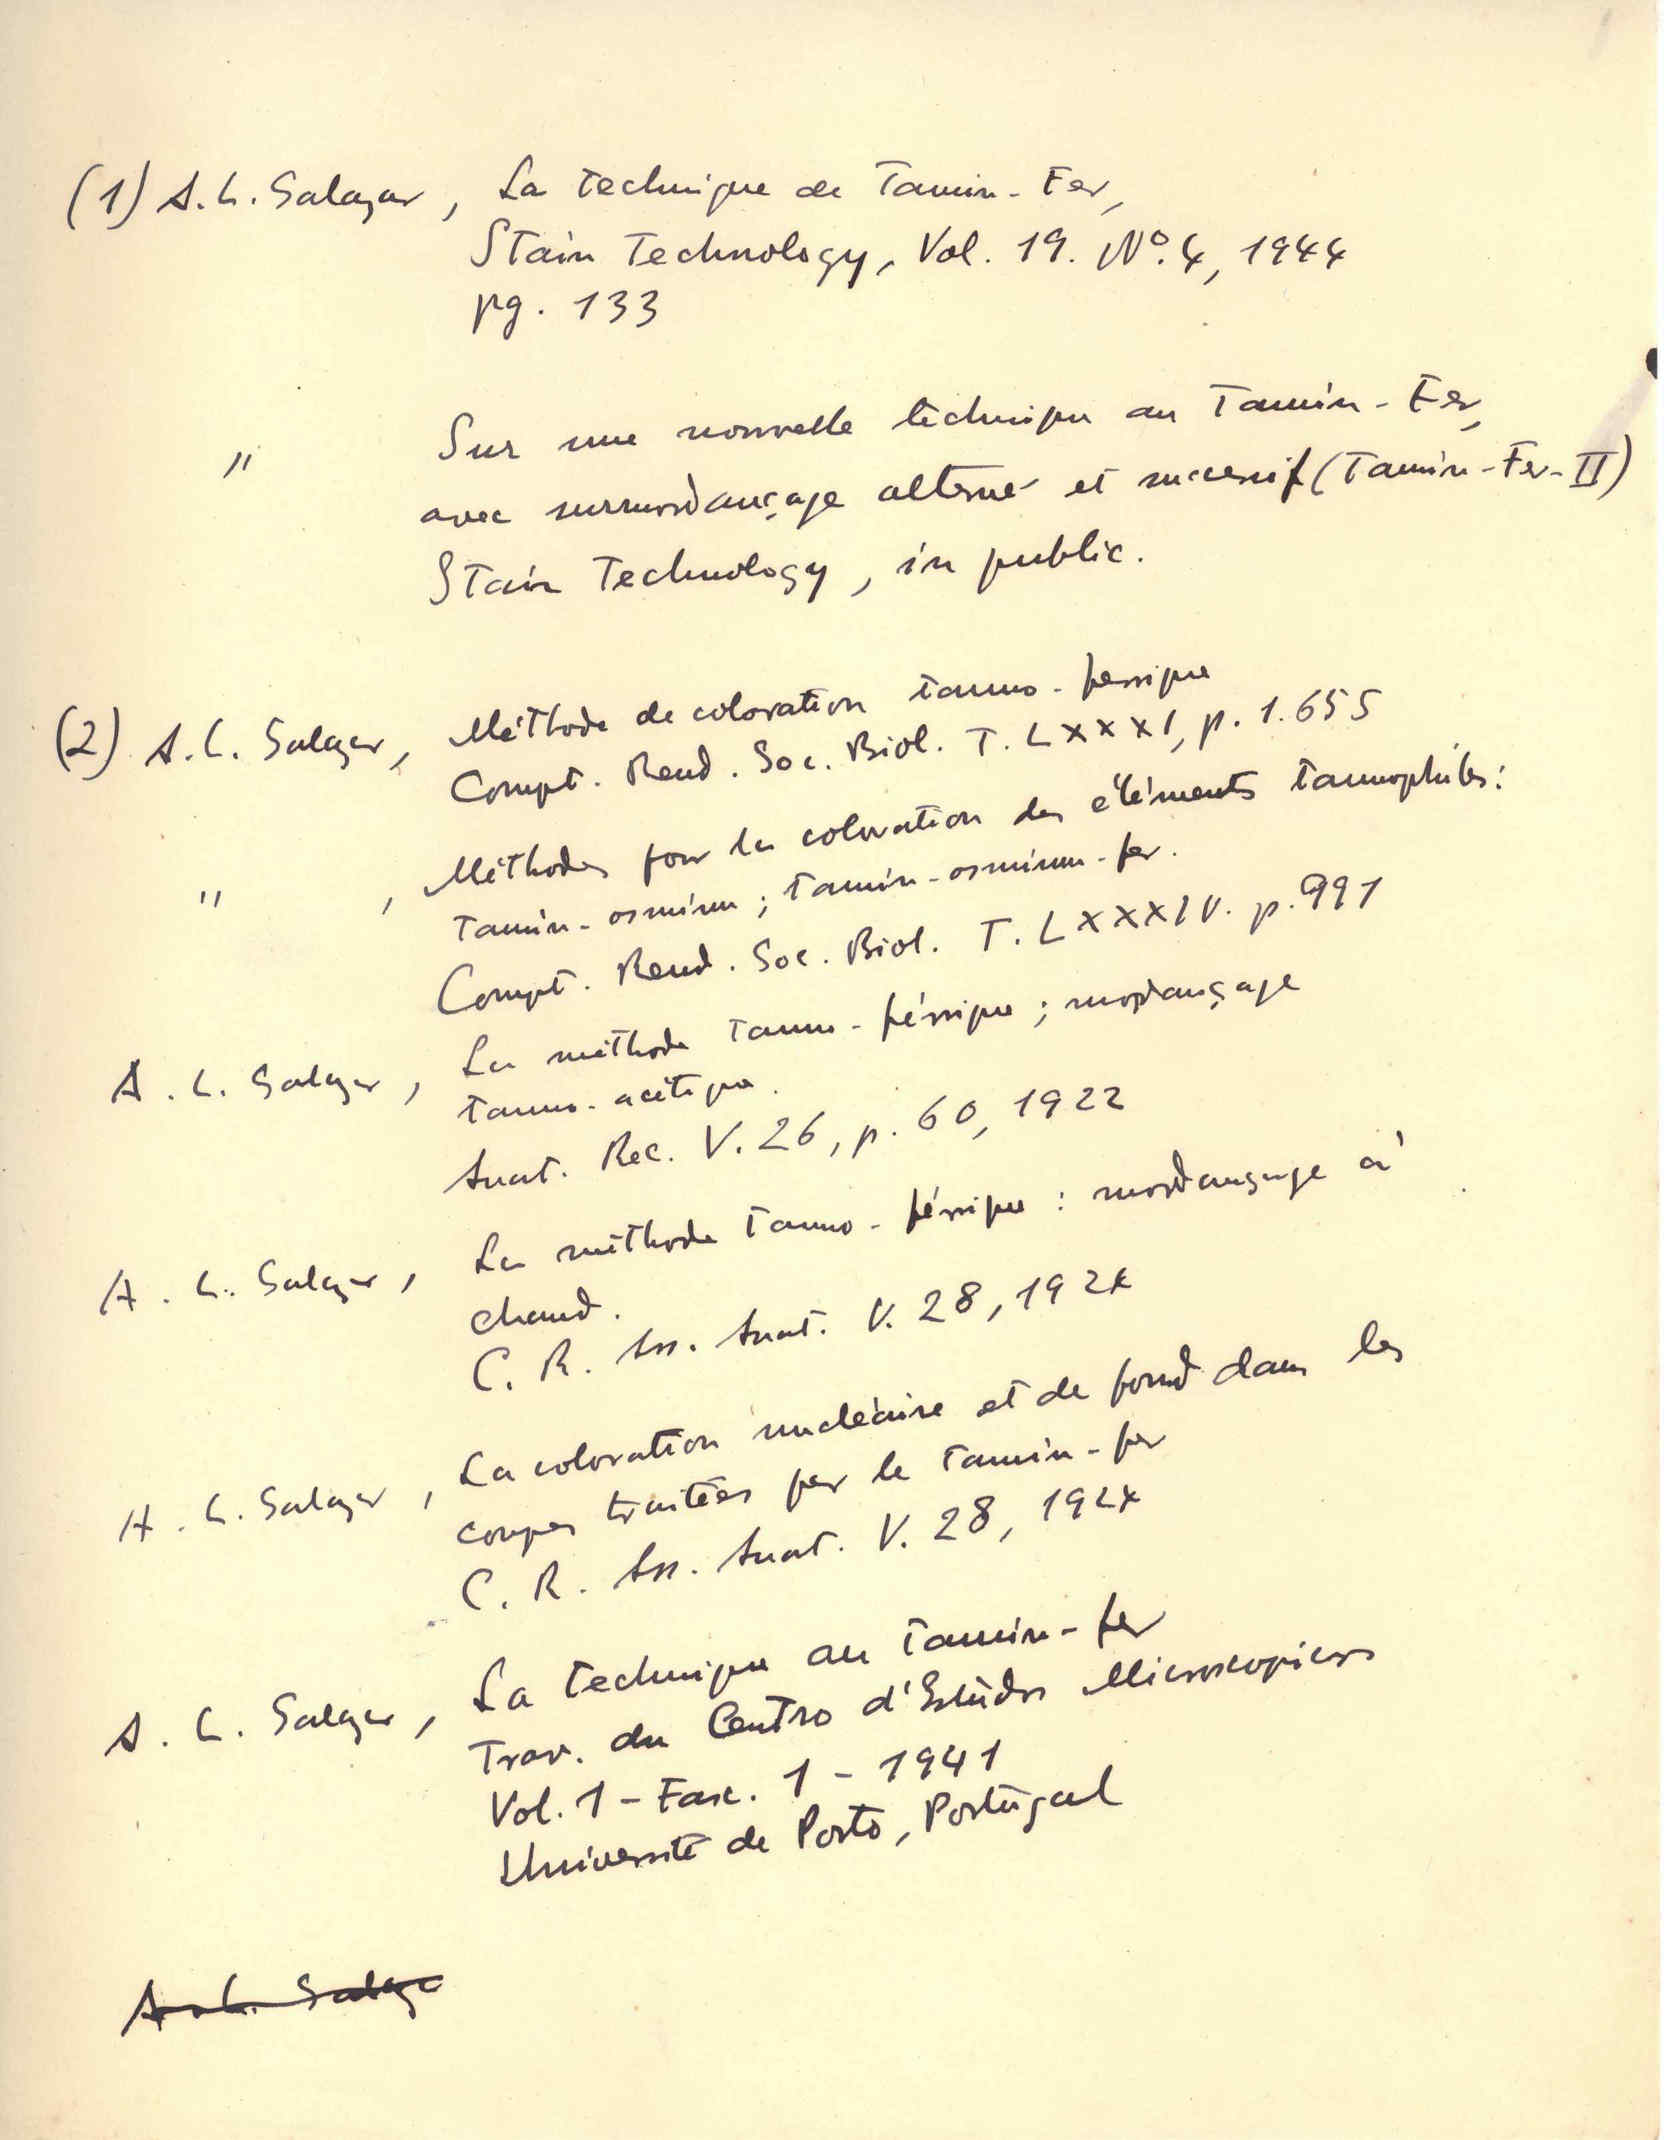 (1) A. L. Salazar, La Technique de Tannin-Fer,
Stain Technology, Vol. 19. Nº. 4, 1944
pg. 133
" Sur une nouvelle technique au Tannin-Fer,
avec surmordançage alterné et succesif (Tannin-Fer-II)
Stain Technology, in public.
(2) A. L. Salazar, Méthode de coloration tanno-ferrique
Compt. Rend. Soc. Biol. T. LXXXI, p. 1.655
" , Méthodes pour la coloration des éléments tannophiles:
Tannin-osmium; tannin-osmium-fer.
Compt. Rend. Soc. Biol. T. LXXXIV. p. 991
A. L. Salazar, La méthode tanno-férrique; mordançage
tanno-acétique.
Anat. Rec. V. 26, p. 60, 1922
A. L. Salazar, La méthode Tanno-férrique: mordançage à
chaud.
C. R. Ass. Anat. V. 28, 1924
A. L. Salazar, La coloration nucléaire et de fond dans les
coupes traitées par le Tannin-fer
C. R. Ass. Anat. V. 28, 1924
A. L. Salazar, La Technique au Tannin-fer
Trav. du Centro d'Estudos Microscopicos
Vol. 1 - Fasc. 1 - 1941
Université de Porto, Portugal
A. L. Salaza